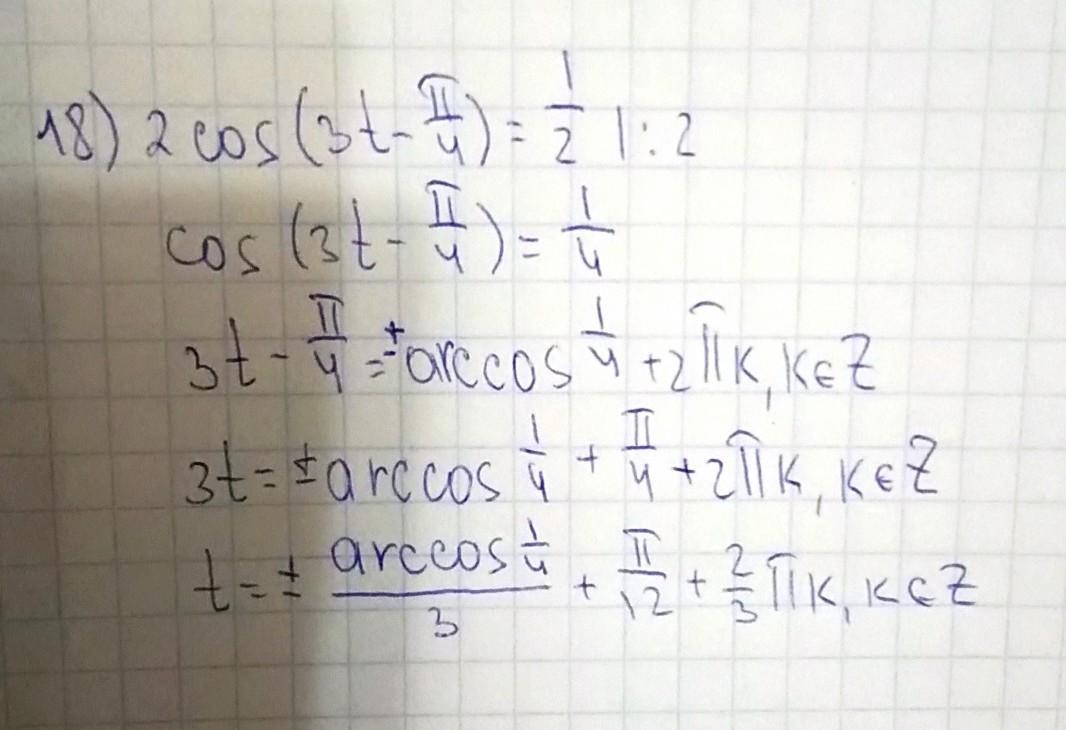 18) 2 cos (3t - π/4) = 1/2 | : 2
cos (3t - π/4) = 1/4
3t - π/4 = ± arccos 1/4 + 2πk, k ∈ Z
3t = ± arccos 1/4 + π/4 + 2πk, k ∈ Z
t = ± arccos 1/4 / 3 + π/12 + 2/3 πk, k ∈ Z